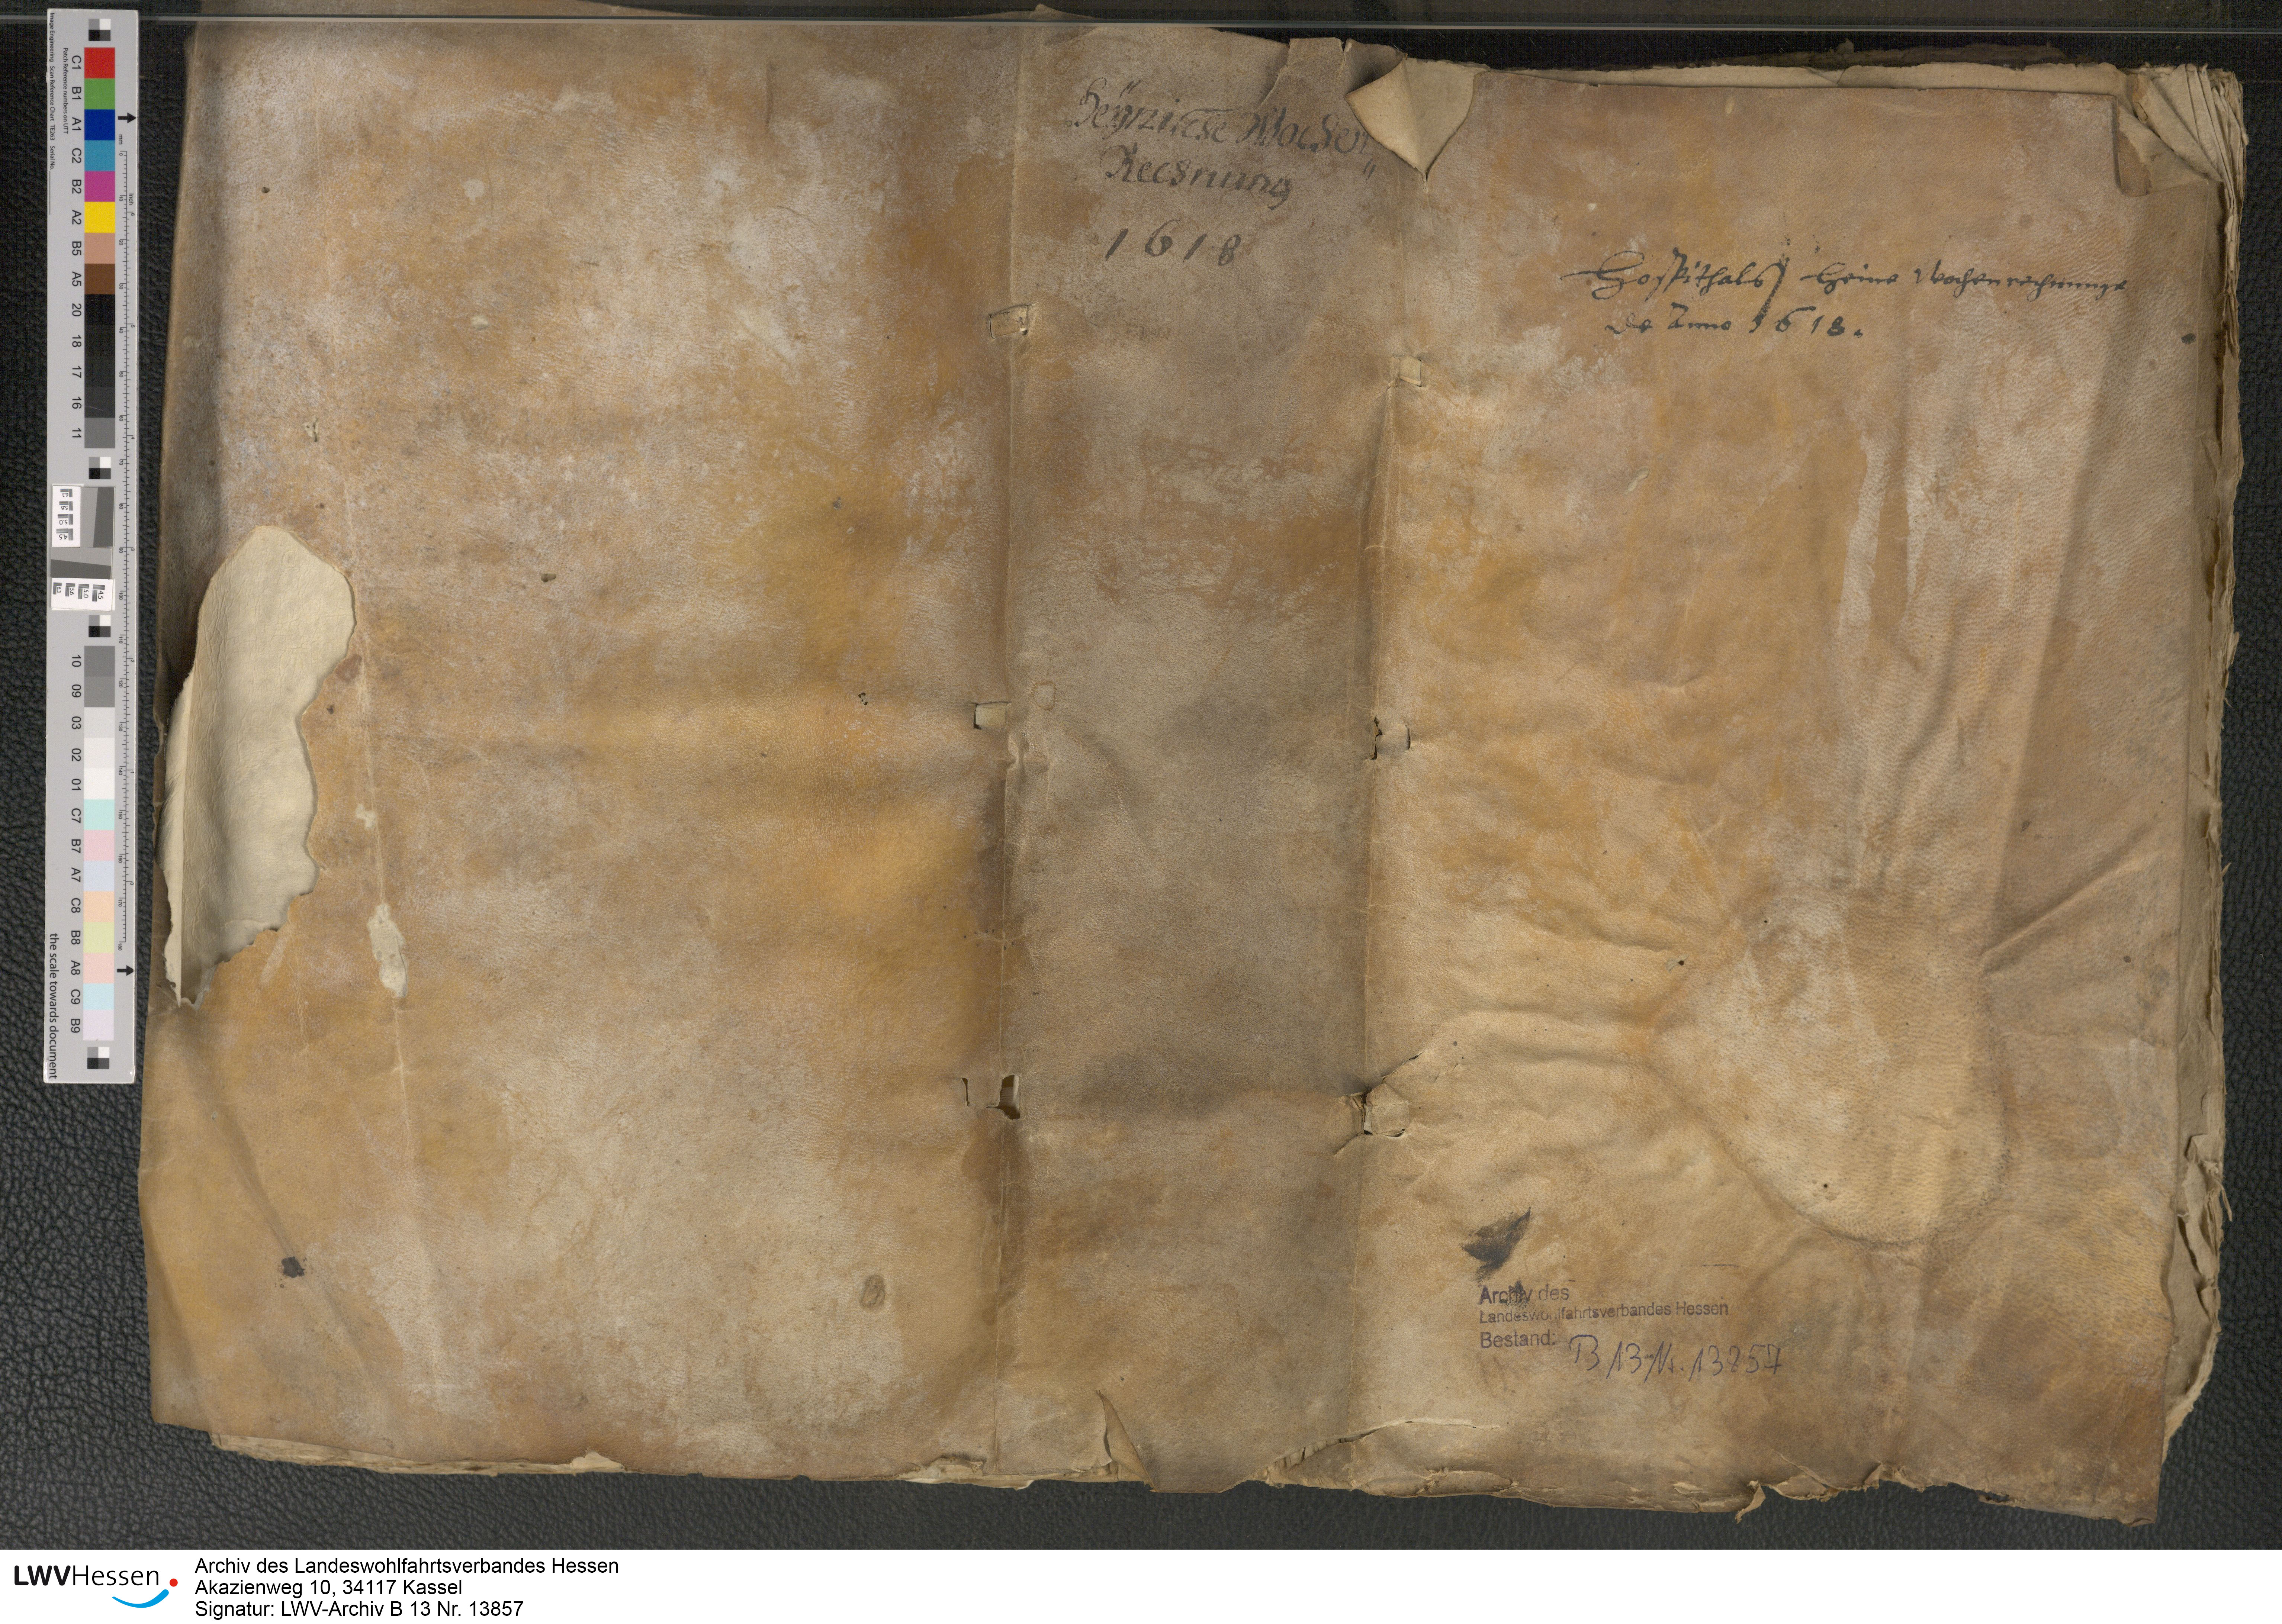 Wochen
Rechnung
1618
Hospithals Heina Wochenrechnunge
de Anno 1618.
Archiv des
Landeswohlfahrtsverbandes Hessen
Bestand: B 13 Nr. 13857
Image Engineering Scan Reference Chart TE263 Serial No.
Patch Reference numbers on UTT
C1
B1
A1
C2
B2
A2
B5
A5
20
18
17
16
11
10
09
03
02
01
C7
B7
A7
C8
B8
A8
C9
B9
the scale towards document
LWVHessen
Archiv des Landeswohlfahrtsverbandes Hessen
Akazienweg 10, 34117 Kassel
Signatur: LWV-Archiv B 13 Nr. 13857